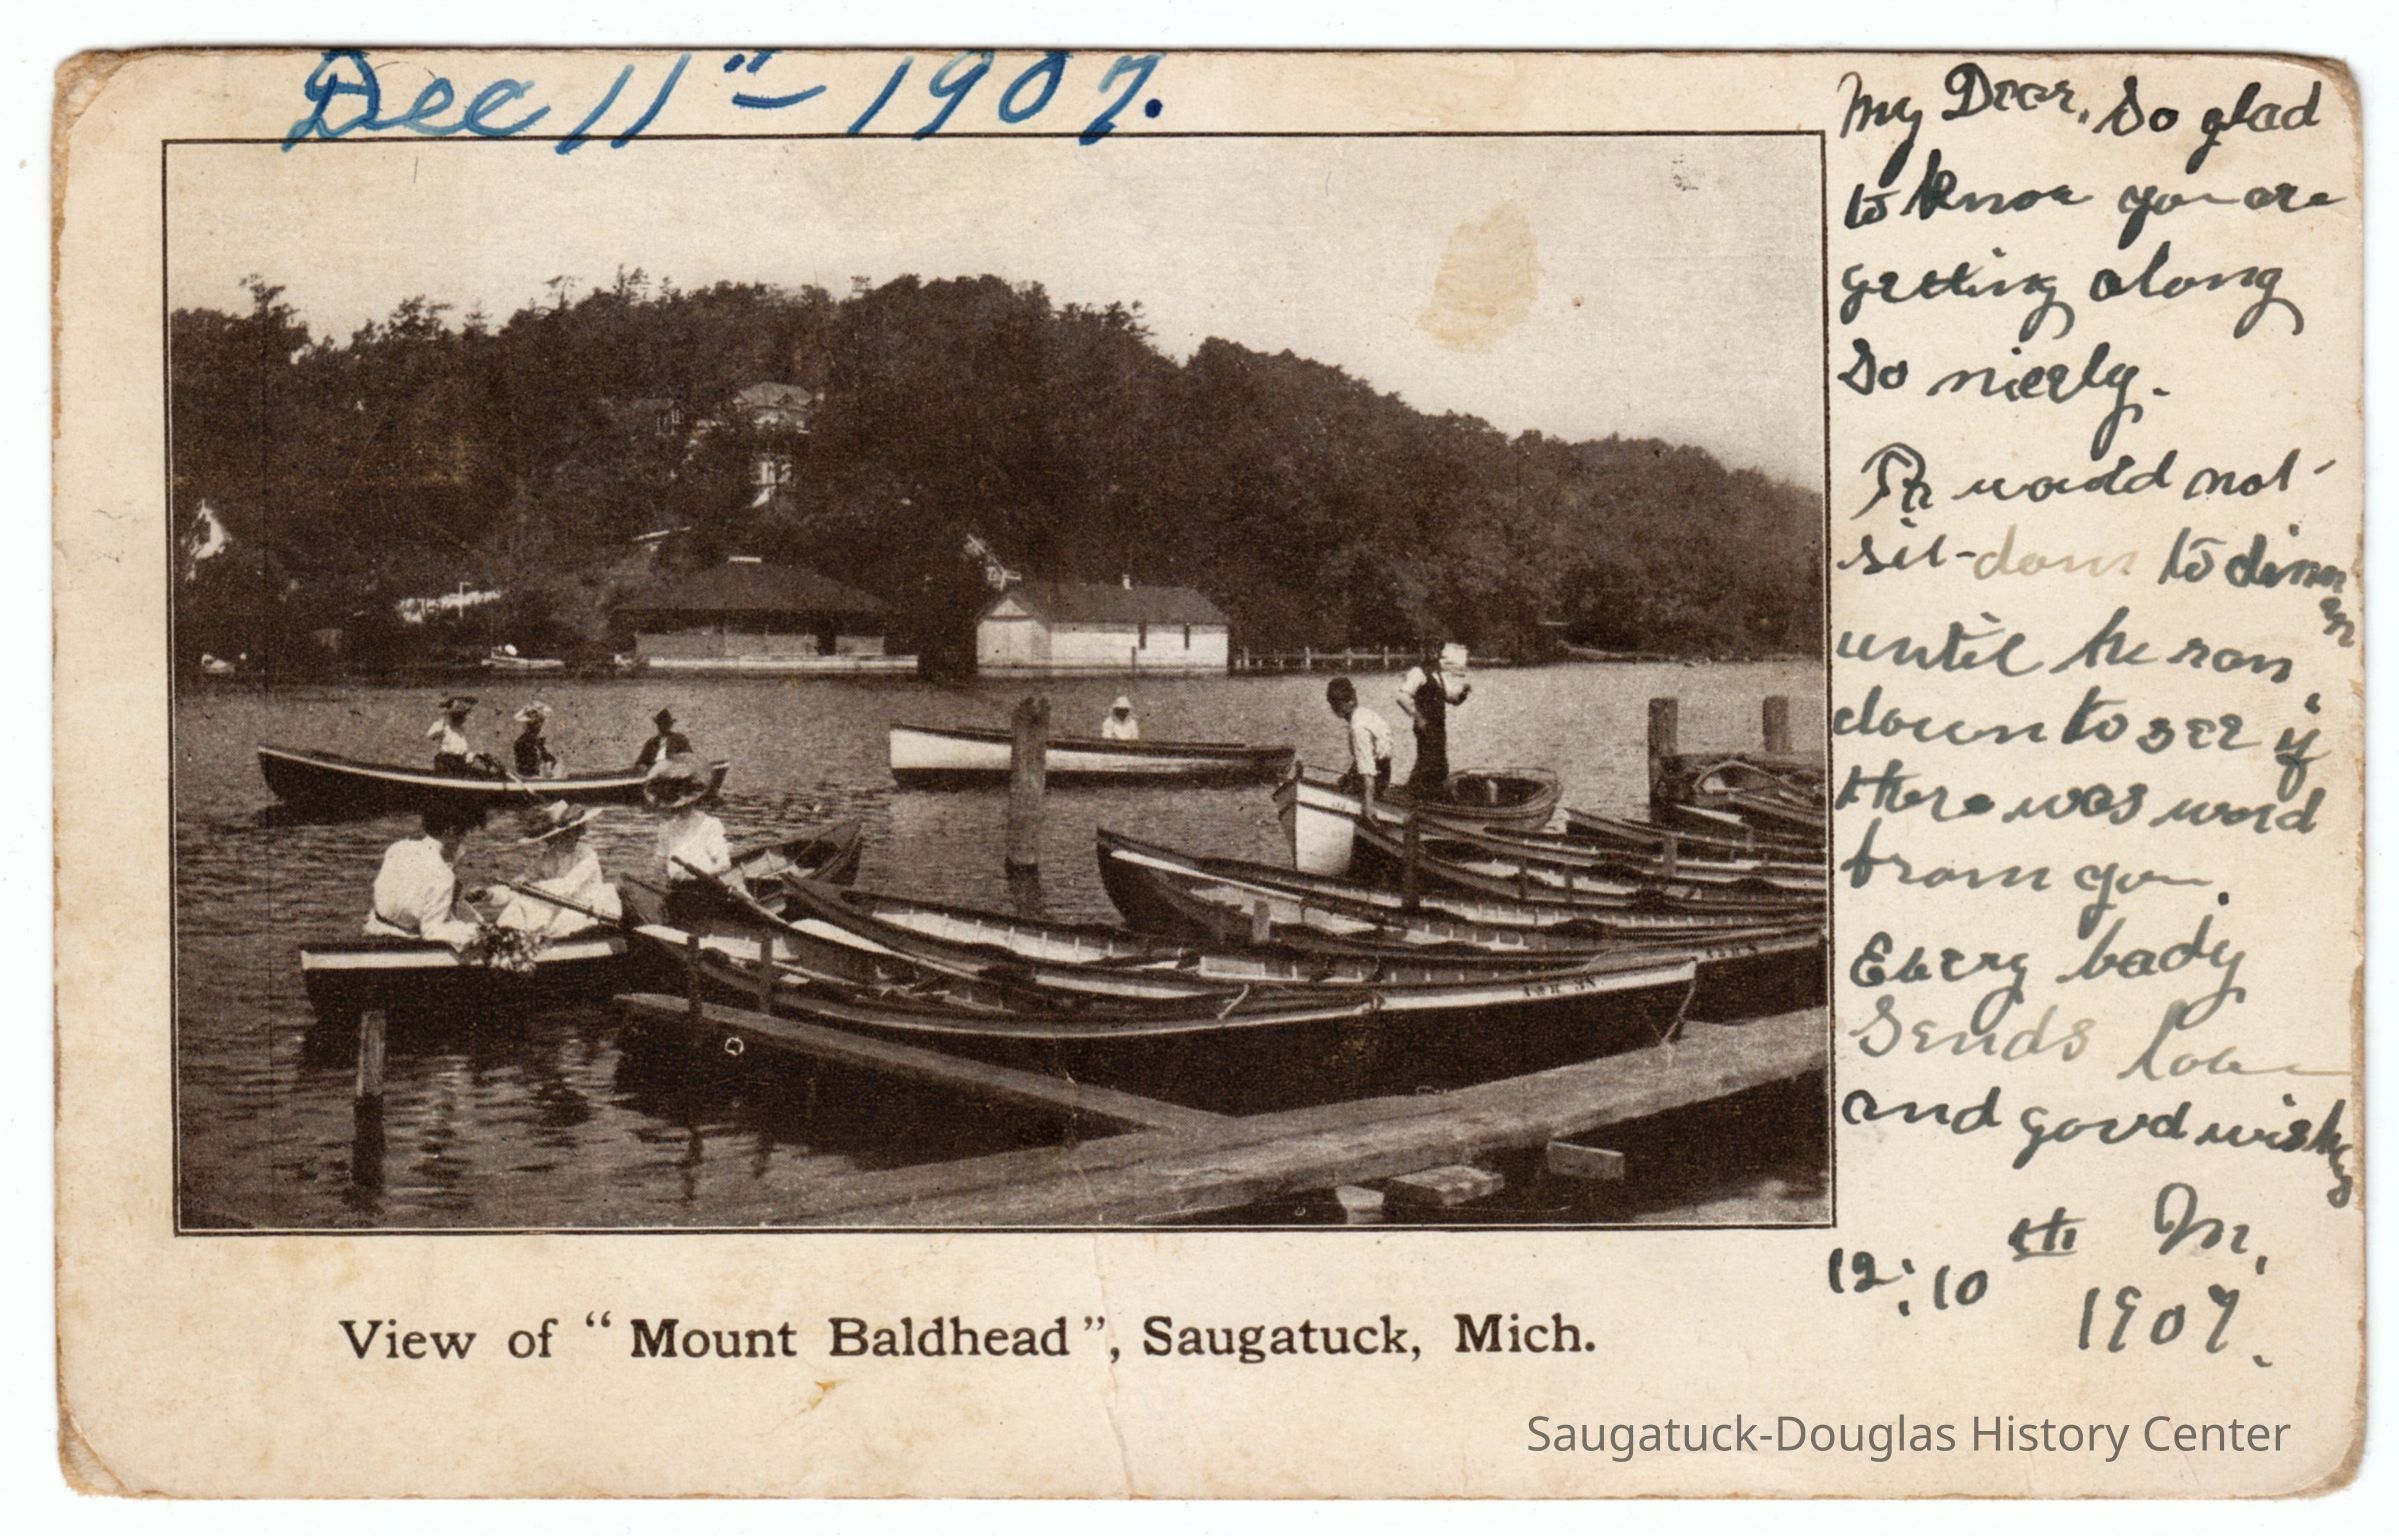 Dec 11" - 1907.
My Dear, So glad
to know you are
getting along
So nicely.
would not
sit-down to dinner
until he ran
down to see if
there was word
from you.
Every body
Sends love
and good wishes
M.
12:10th
1907.
View of "Mount Baldhead", Saugatuck, Mich.
Saugatuck-Douglas History Center